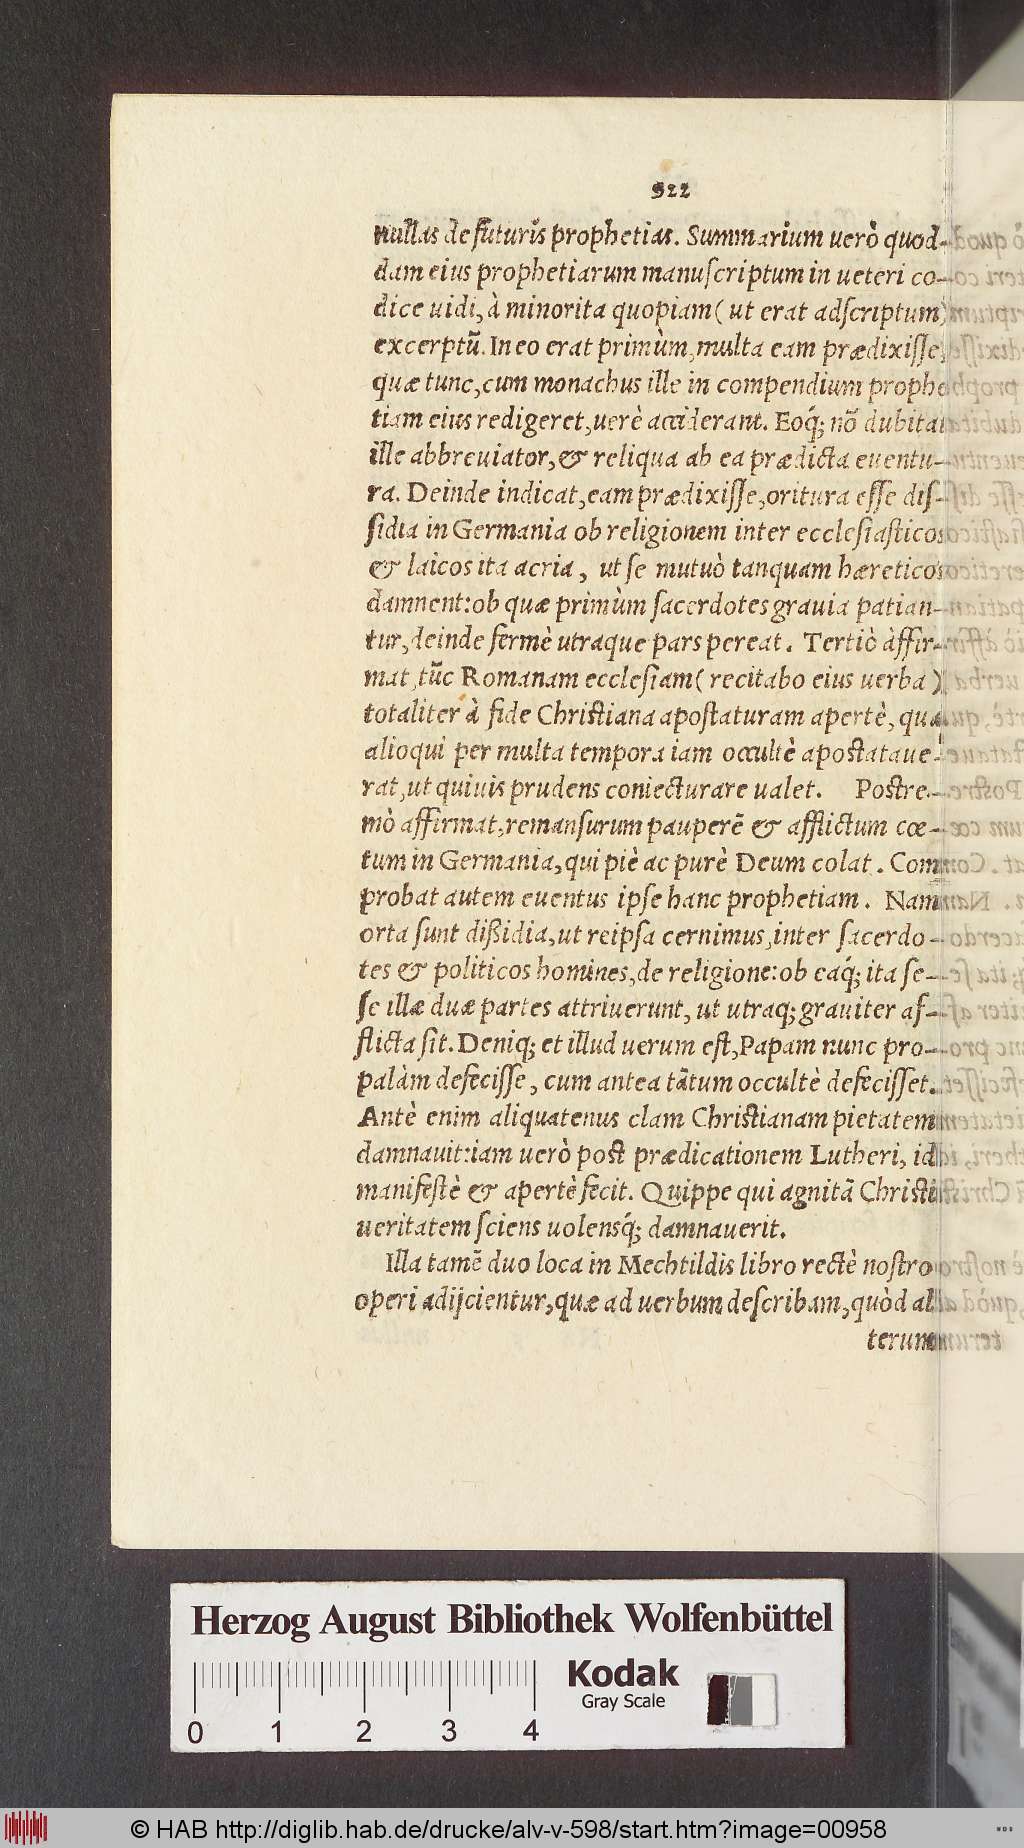 922
nullas de futuris prophetias. Summarium uerò quod-
dam eius prophetiarum manuscriptum in ueteri co-
dice uidi, à minorita quopiam (ut erat adscriptum)
excerptũ. In eo erat primùm, multa eam prædixisse,
quæ tunc, cum monachus ille in compendium prophe
tiam eius redigeret, uerè acciderant. Eoq́; nõ dubitat
ille abbreuiator, & reliqua ab ea prædicta euentu-
ra. Deinde indicat, eam prædixisse, oritura esse dis-
sidia in Germania ob religionem inter ecclesiasticos
& laicos ita acria, ut se mutuò tanquam hæreticos
damnent: ob quæ primùm sacerdotes grauia patian-
tur, deinde fermè utraque pars pereat. Tertiò àffir-
mat, tũc Romanam ecclesiam (recitabo eius uerba)
totaliter à fide Christiana apostaturam apertè, quæ
alioqui per multa tempora iam occultè apostataue-
rat, ut quiuis prudens coniecturare ualet. Postre-
mò affirmat, remansurum pauperẽ & afflictum cœ-
tum in Germania, qui piè ac purè Deum colat. Com
probat autem euentus ipse hanc prophetiam. Nam
orta sunt dißidia, ut reipsa cernimus, inter sacerdo-
tes & politicos homines, de religione: ob eaq́; ita se-
se illæ duæ partes attriuerunt, ut utraq; grauiter af-
flicta sit. Deniq; et illud uerum est, Papam nunc pro-
palàm defecisse, cum antea tãtum occultè defecisset.
Antè enim aliquatenus clam Christianam pietatem
damnauit: iam uerò post prædicationem Lutheri, id
manifestè & apertè fecit. Quippe qui agnitã Christi
ueritatem sciens uolensq́; damnauerit.
Illa tamẽ duo loca in Mechtildis libro rectè nostro
operi adijcientur, quæ ad uerbum describam, quòd al
terum
Herzog August Bibliothek Wolfenbüttel
Kodak
Gray Scale
0 1 2 3 4
© HAB http://diglib.hab.de/drucke/alv-v-598/start.htm?image=00958